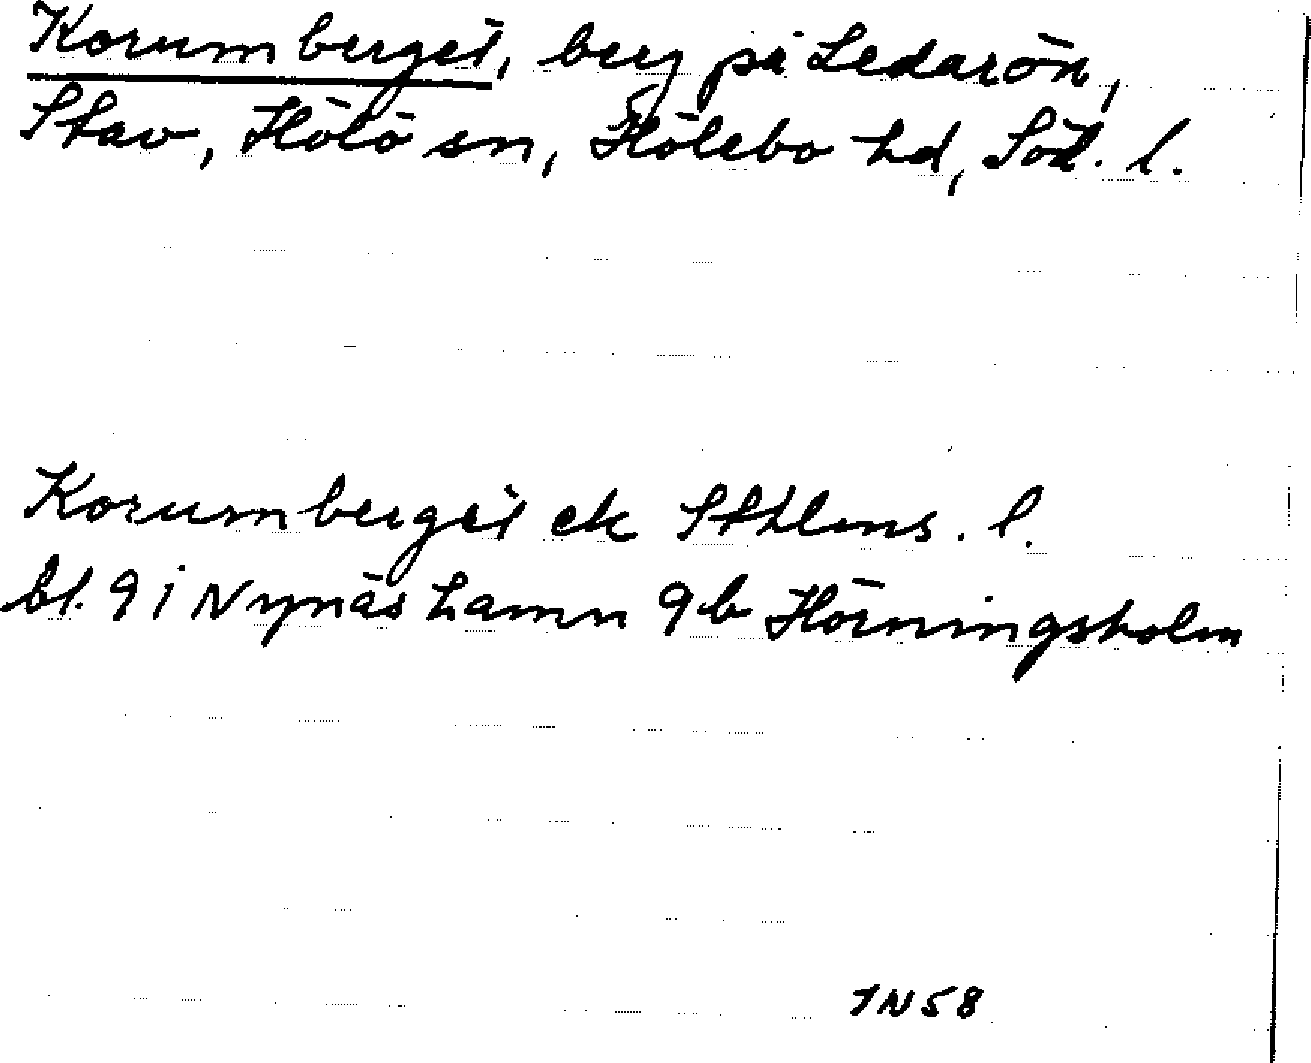 Korumberget, berg på Ledarön,
Stav, Hölö sn, Hölebo hd, Söd. l.
Korumberget ek Sthlms. l.
bl. 9 i Nynäshamn 9b Hörningsholm
TN58